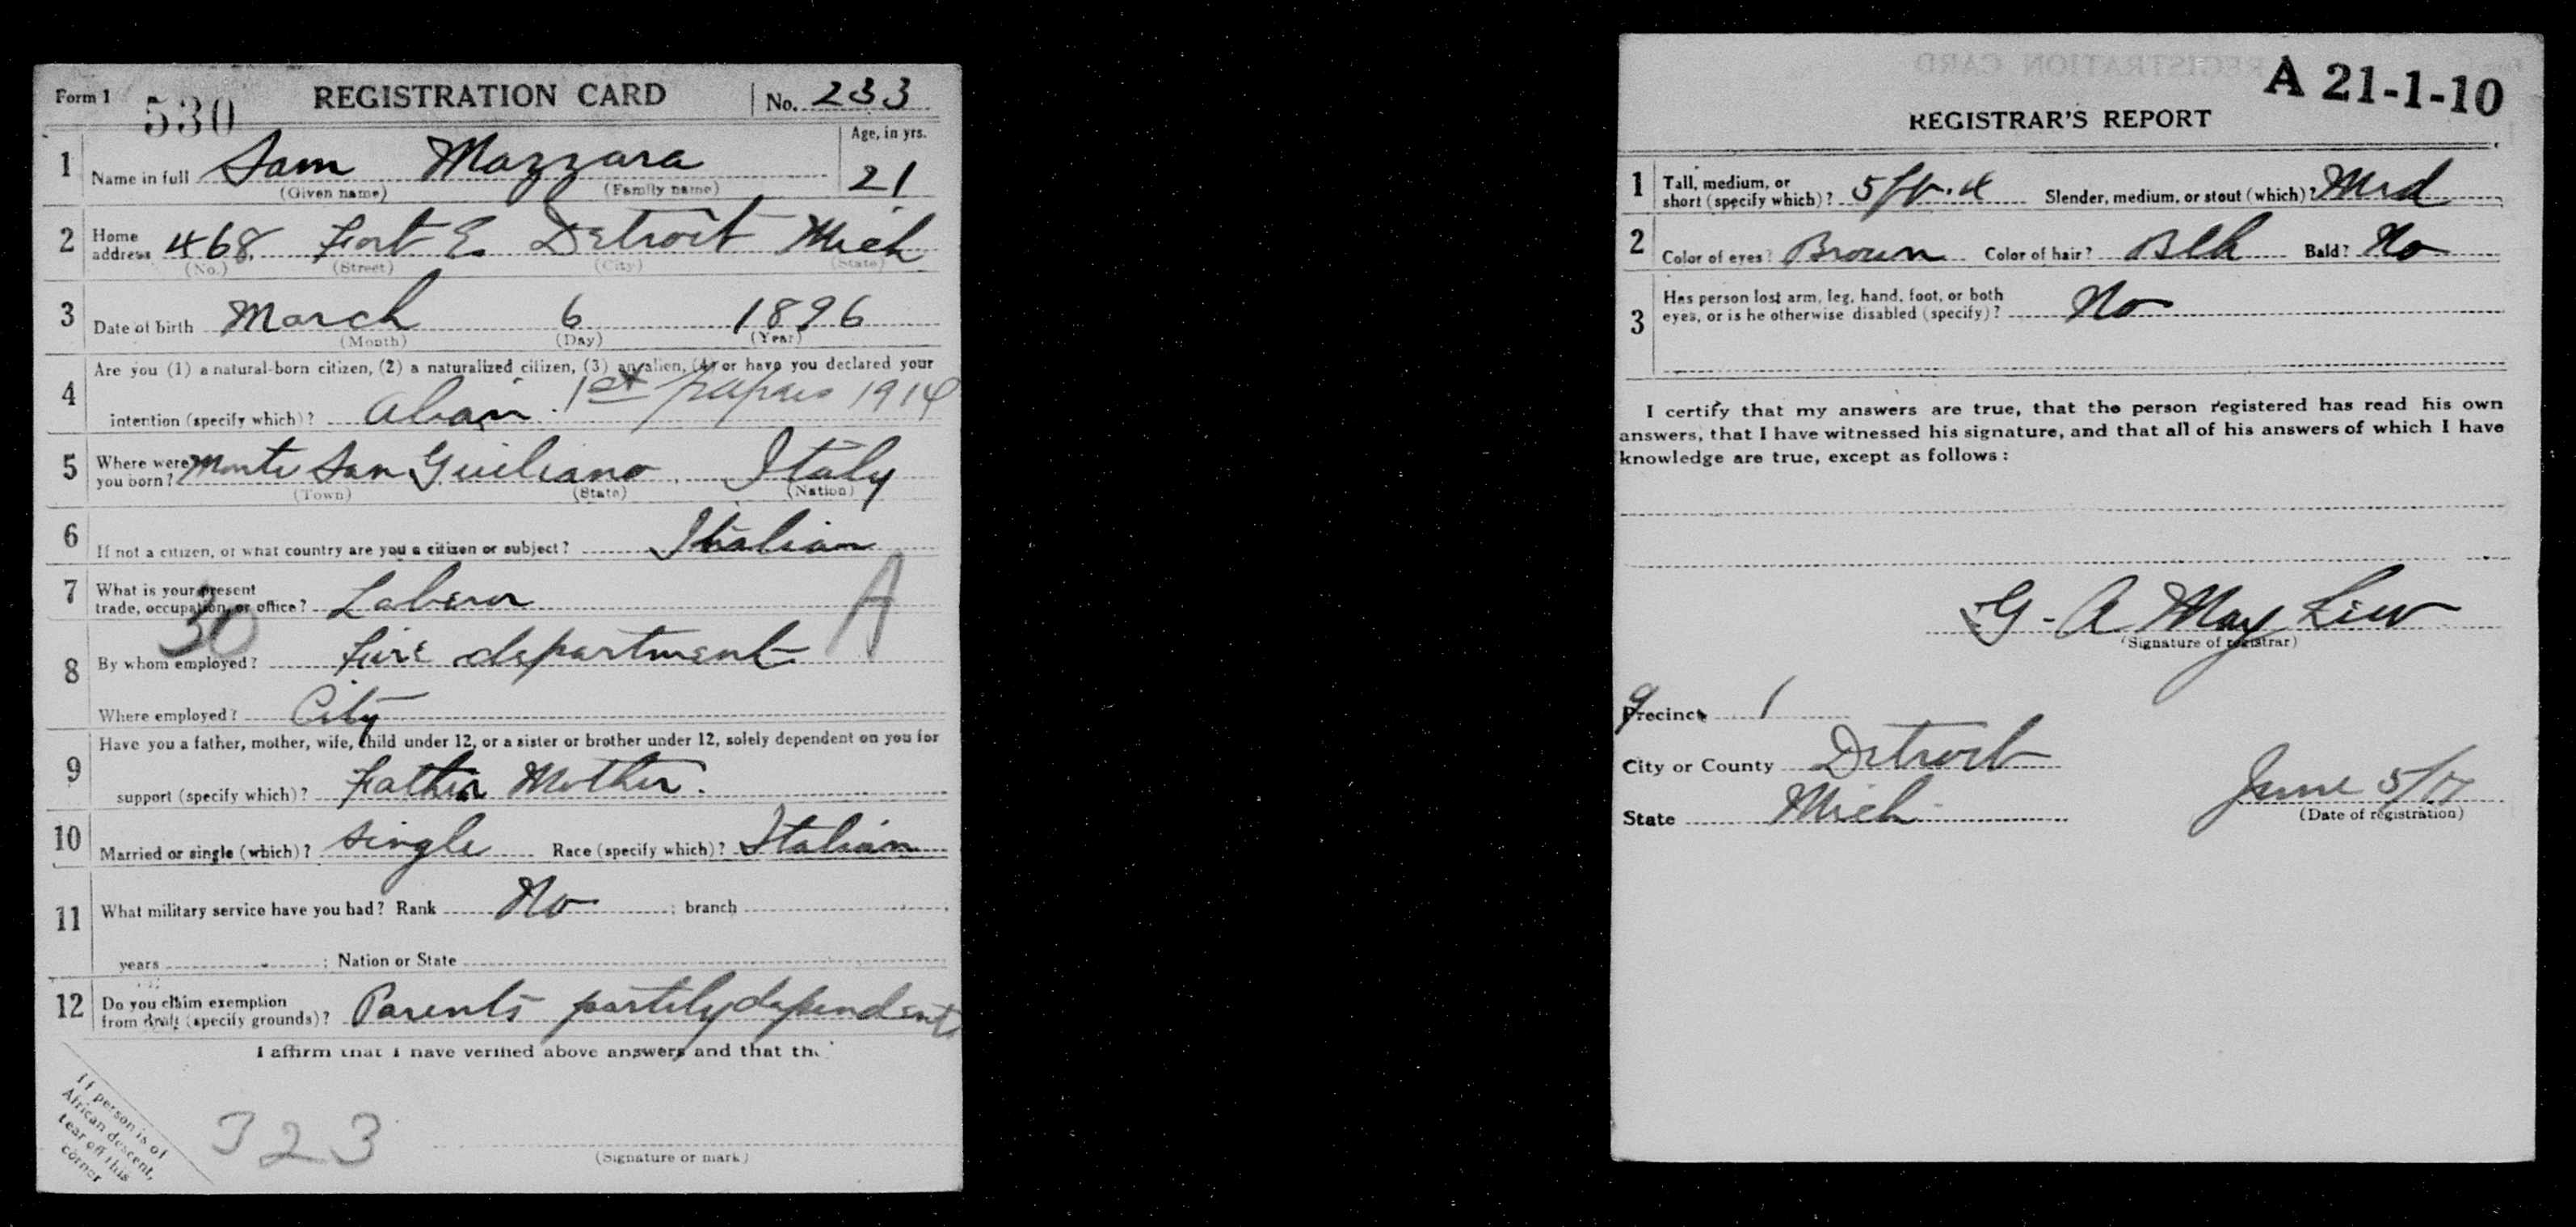 Form 1 530 REGISTRATION CARD No. 233
1 Name in full Sam Mazzara Age, in yrs. 21
(Given name) (Family name)
2 Home address 468 Fort E. Detroit Mich
(No.) (Street) (City) (State)
3 Date of birth March 6 1896
(Month) (Day) (Year)
4 Are you (1) a natural-born citizen, (2) a naturalized citizen, (3) an alien, (4) or have you declared your
intention (specify which)? Alian. 1st papers 1914
5 Where were you born? Monte San Guiliano, Italy
(Town) (State) (Nation)
6 If not a citizen, of what country are you a citizen or subject? Italian
7 What is your present trade, occupation, or office? Laberor
30 A
8 By whom employed? Fire department
Where employed? City
9 Have you a father, mother, wife, child under 12, or a sister or brother under 12, solely dependent on you for
support (specify which)? Father Mother.
10 Married or single (which)? single Race (specify which)? Italian
11 What military service have you had? Rank No ; branch
years ; Nation or State
12 Do you claim exemption from draft (specify grounds)? Parents partily dependent
I affirm that I have verified above answers and that the
If person is of
African descent,
tear off this
corner
323
(Signature or mark)
REGISTRATION CARD
A 21-1-10
REGISTRAR'S REPORT
1 Tall, medium, or short (specify which)? 5 ft. 4 Slender, medium, or stout (which)? Med
2 Color of eyes? Brown Color of hair? Blk Bald? No
3 Has person lost arm, leg, hand, foot, or both
eyes, or is he otherwise disabled (specify)? No
I certify that my answers are true, that the person registered has read his own
answers, that I have witnessed his signature, and that all of his answers of which I have
knowledge are true, except as follows:
G. A May Liew
(Signature of registrar)
9
Precinct 1
City or County Detroit
State Mich
June 5/17
(Date of registration)